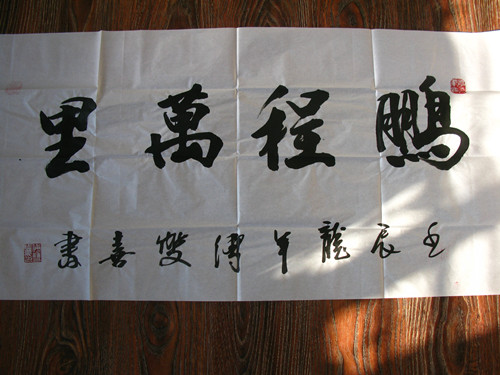 鵬程萬里
壬辰龍年雙喜書